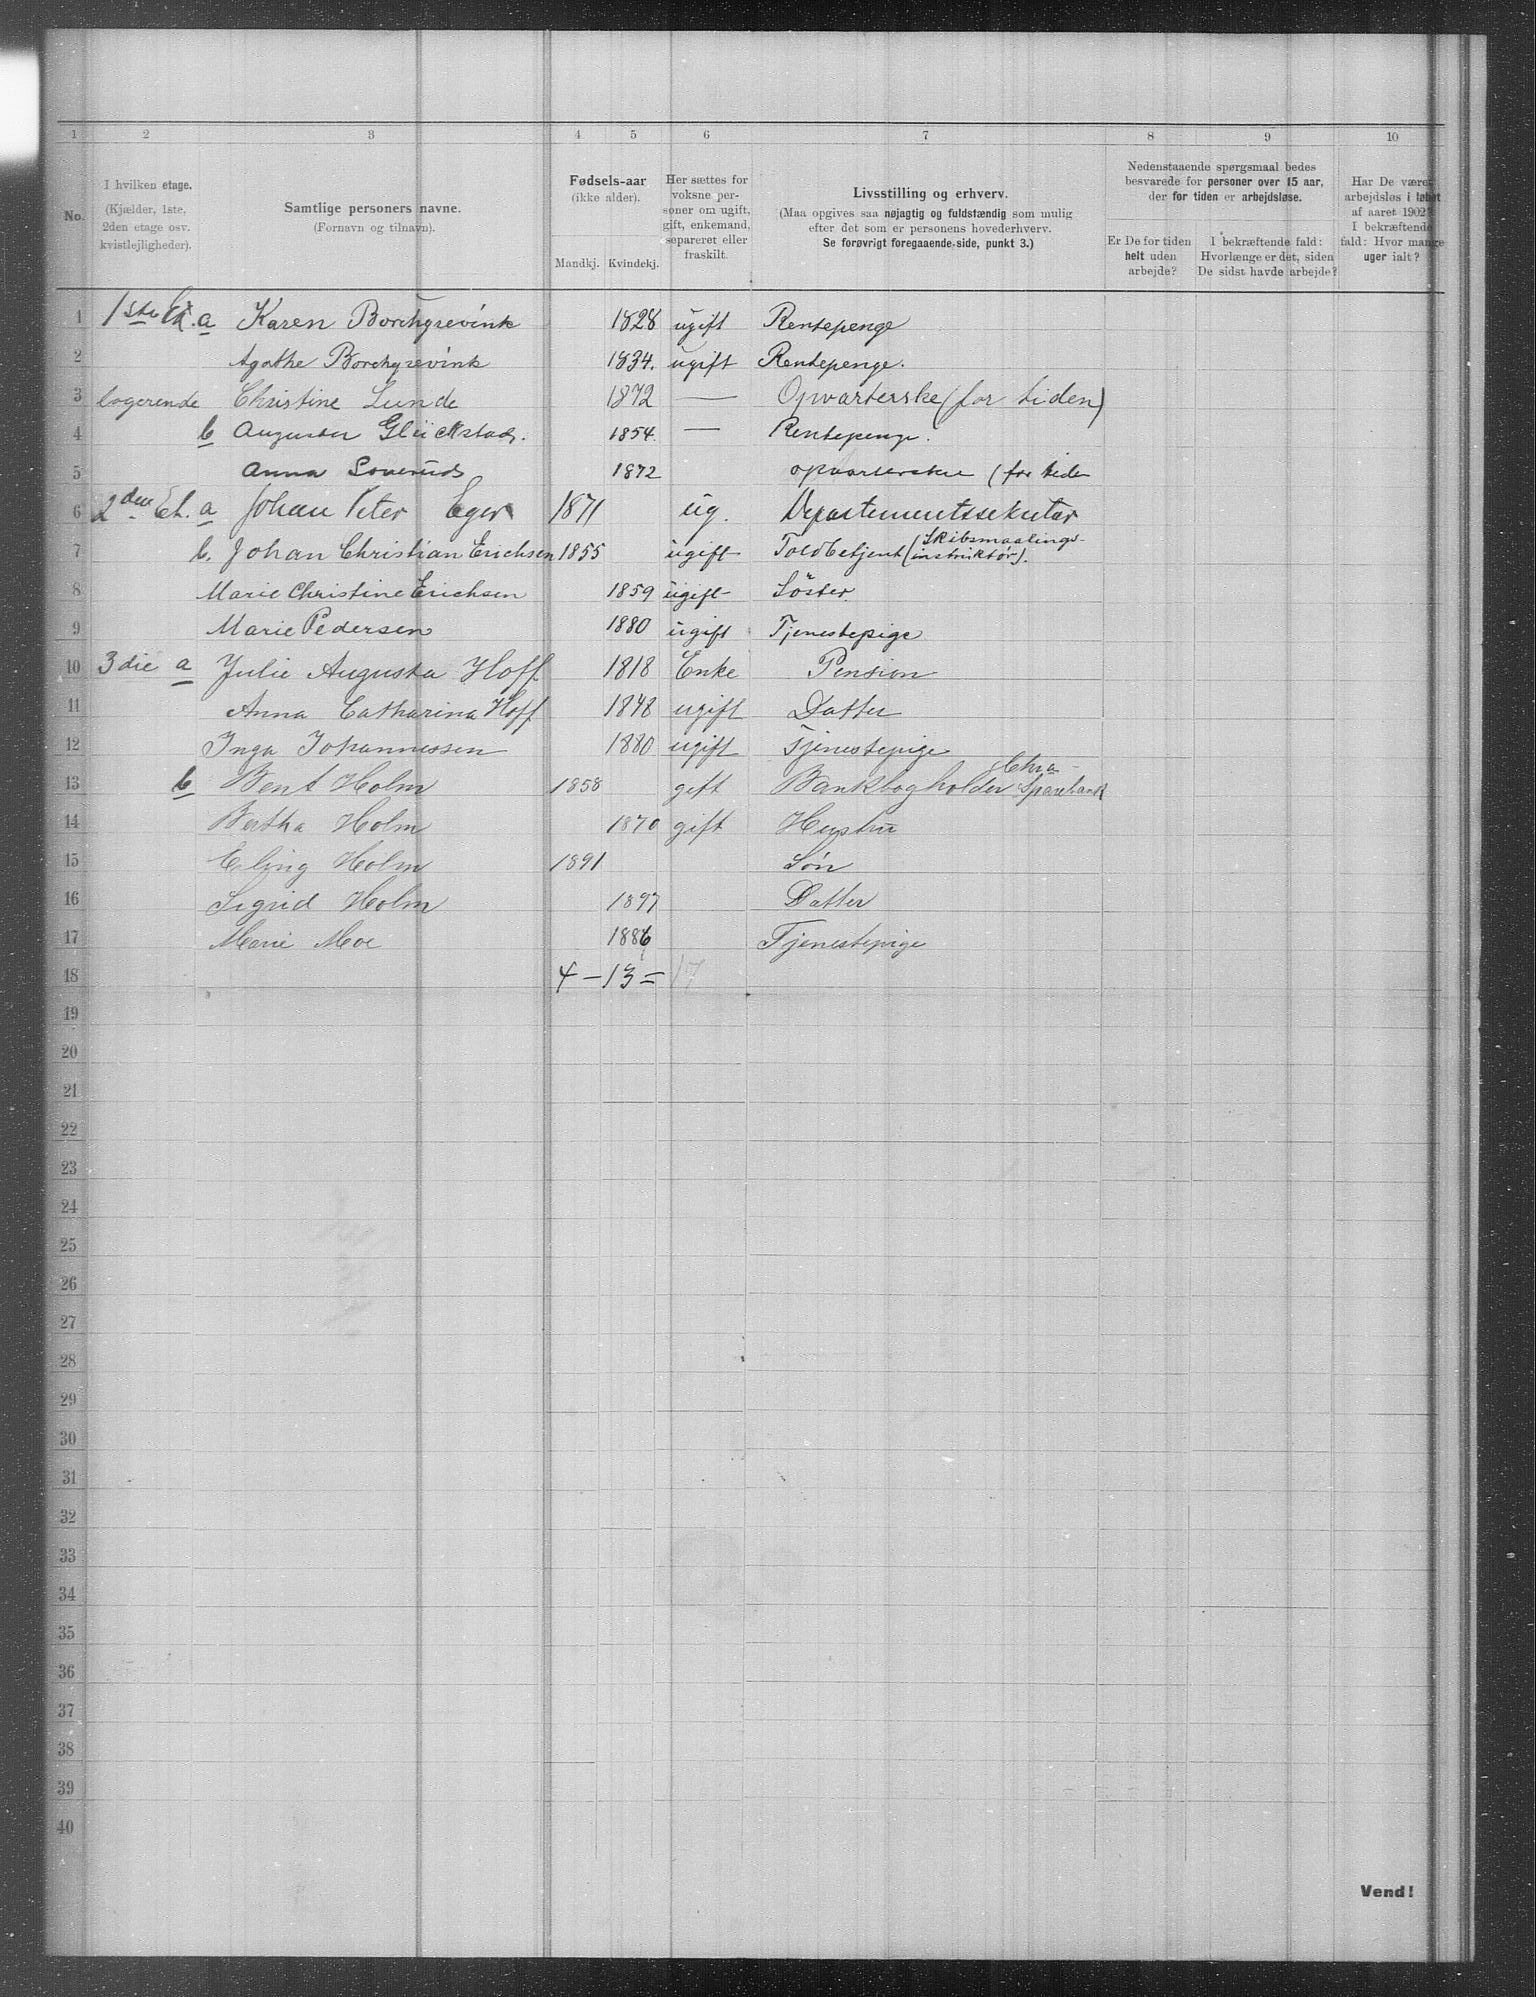 1 2 3 4 5 6 7 8 9 10
No.
I hvilken etage.
(Kjælder, 1ste,
2den etage osv.
kvistlejligheder).
Samtlige personers navne.
(Fornavn og tilnavn).
Fødsels-aar
(ikke alder).
Mandkj. Kvindekj.
Her sættes for
voksne per-
soner om ugift,
gift, enkemand,
separeret eller
fraskilt.
Livsstilling og erhverv.
(Maa opgives saa nøjagtig og fuldstændig som mulig
efter det som er personens hovederhverv.
Se forøvrigt foregaaende side, punkt 3.)
Nedenstaaende spørgsmaal bedes
besvarede for personer over 15 aar,
der for tiden er arbejdsløse.
Er De for tiden
helt uden
arbejde?
I bekræftende fald:
Hvorlænge er det, siden
De sidst havde arbejde?
Har De været
arbejdsløs i løbet
af aaret 1902?
I bekræftende
fald: Hvor mange
uger ialt?
1 1ste Et. a Karen Borchgrevink 1828 ugift Rentepenge
2 Agathe Borchgrevink 1834. ugift Rentepenge.
3 logerende Christine Lunde 1872 — Opvarterske (for tiden)
4 b Augusta Glückstad. 1854 — Rentepenge.
5 Anna 1872 opvarterske (for tiden
6 2den Et. a Johan Peter Eger 1871 ug. Departementssekretær
7 b. Johan Christian Erichsen 1855 ugift Toldbetjent (Skibsmaalings-
instruktør).
8 Marie Christine Erichsen 1859 ugift Söster.
9 Marie Pedersen 1880 ugift Tjenestepige
10 3die a Julie Augusta Hoff 1818 Enke Pension
11 Anna Catharina Hoff 1848 ugift Datter
12 Inga Johannessen 1880 ugift Tjenestepige
13 b Bent Holm 1858 gift Bankbogholder Chra Sparebank
14 Bertha Holm 1870 gift Hustru
15 Erling Holm 1891 Søn
16 Sigrid Holm 1897 Datter
17 Marie Moe 1886 Tjenestepige
18 4 — 13 = 17
19
20
21
22
23
24
25
26
27
28
29
30
31
32
33
34
35
36
37
38
39
40
Vend!